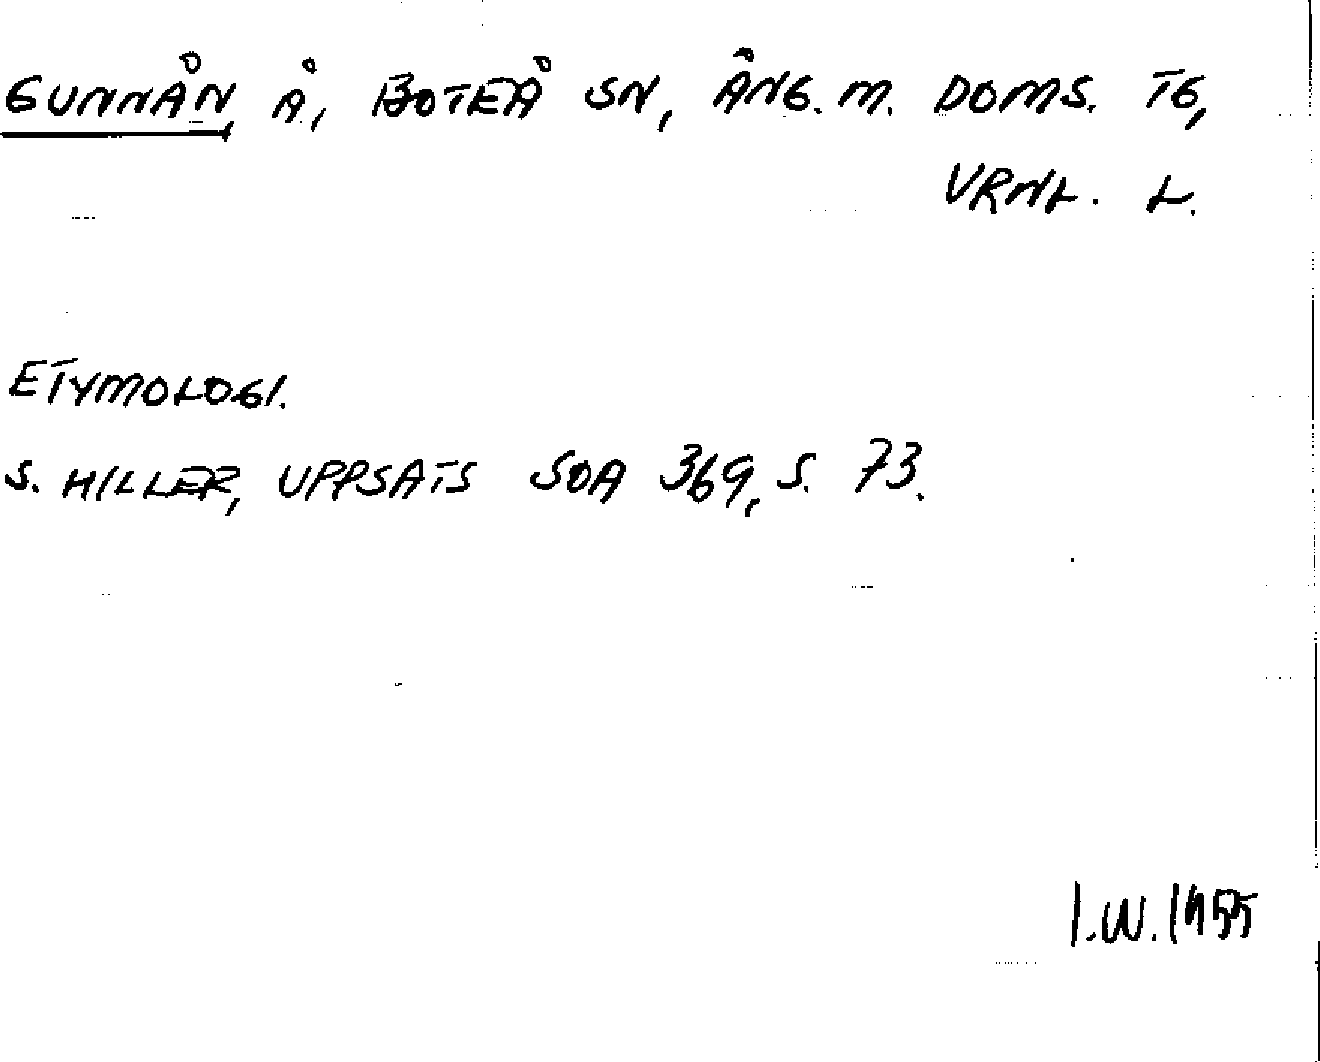 GUNNÅN, Å, BOTEÅ SN, ÅNG. M. DOMS. TG,
VRNL. L.
ETYMOLOGI.
S. HILLER, UPPSATS SOA 369, S. 73.
I.W. 1955